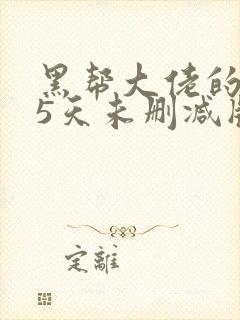 黑帮大佬的
5天未删减版
定離